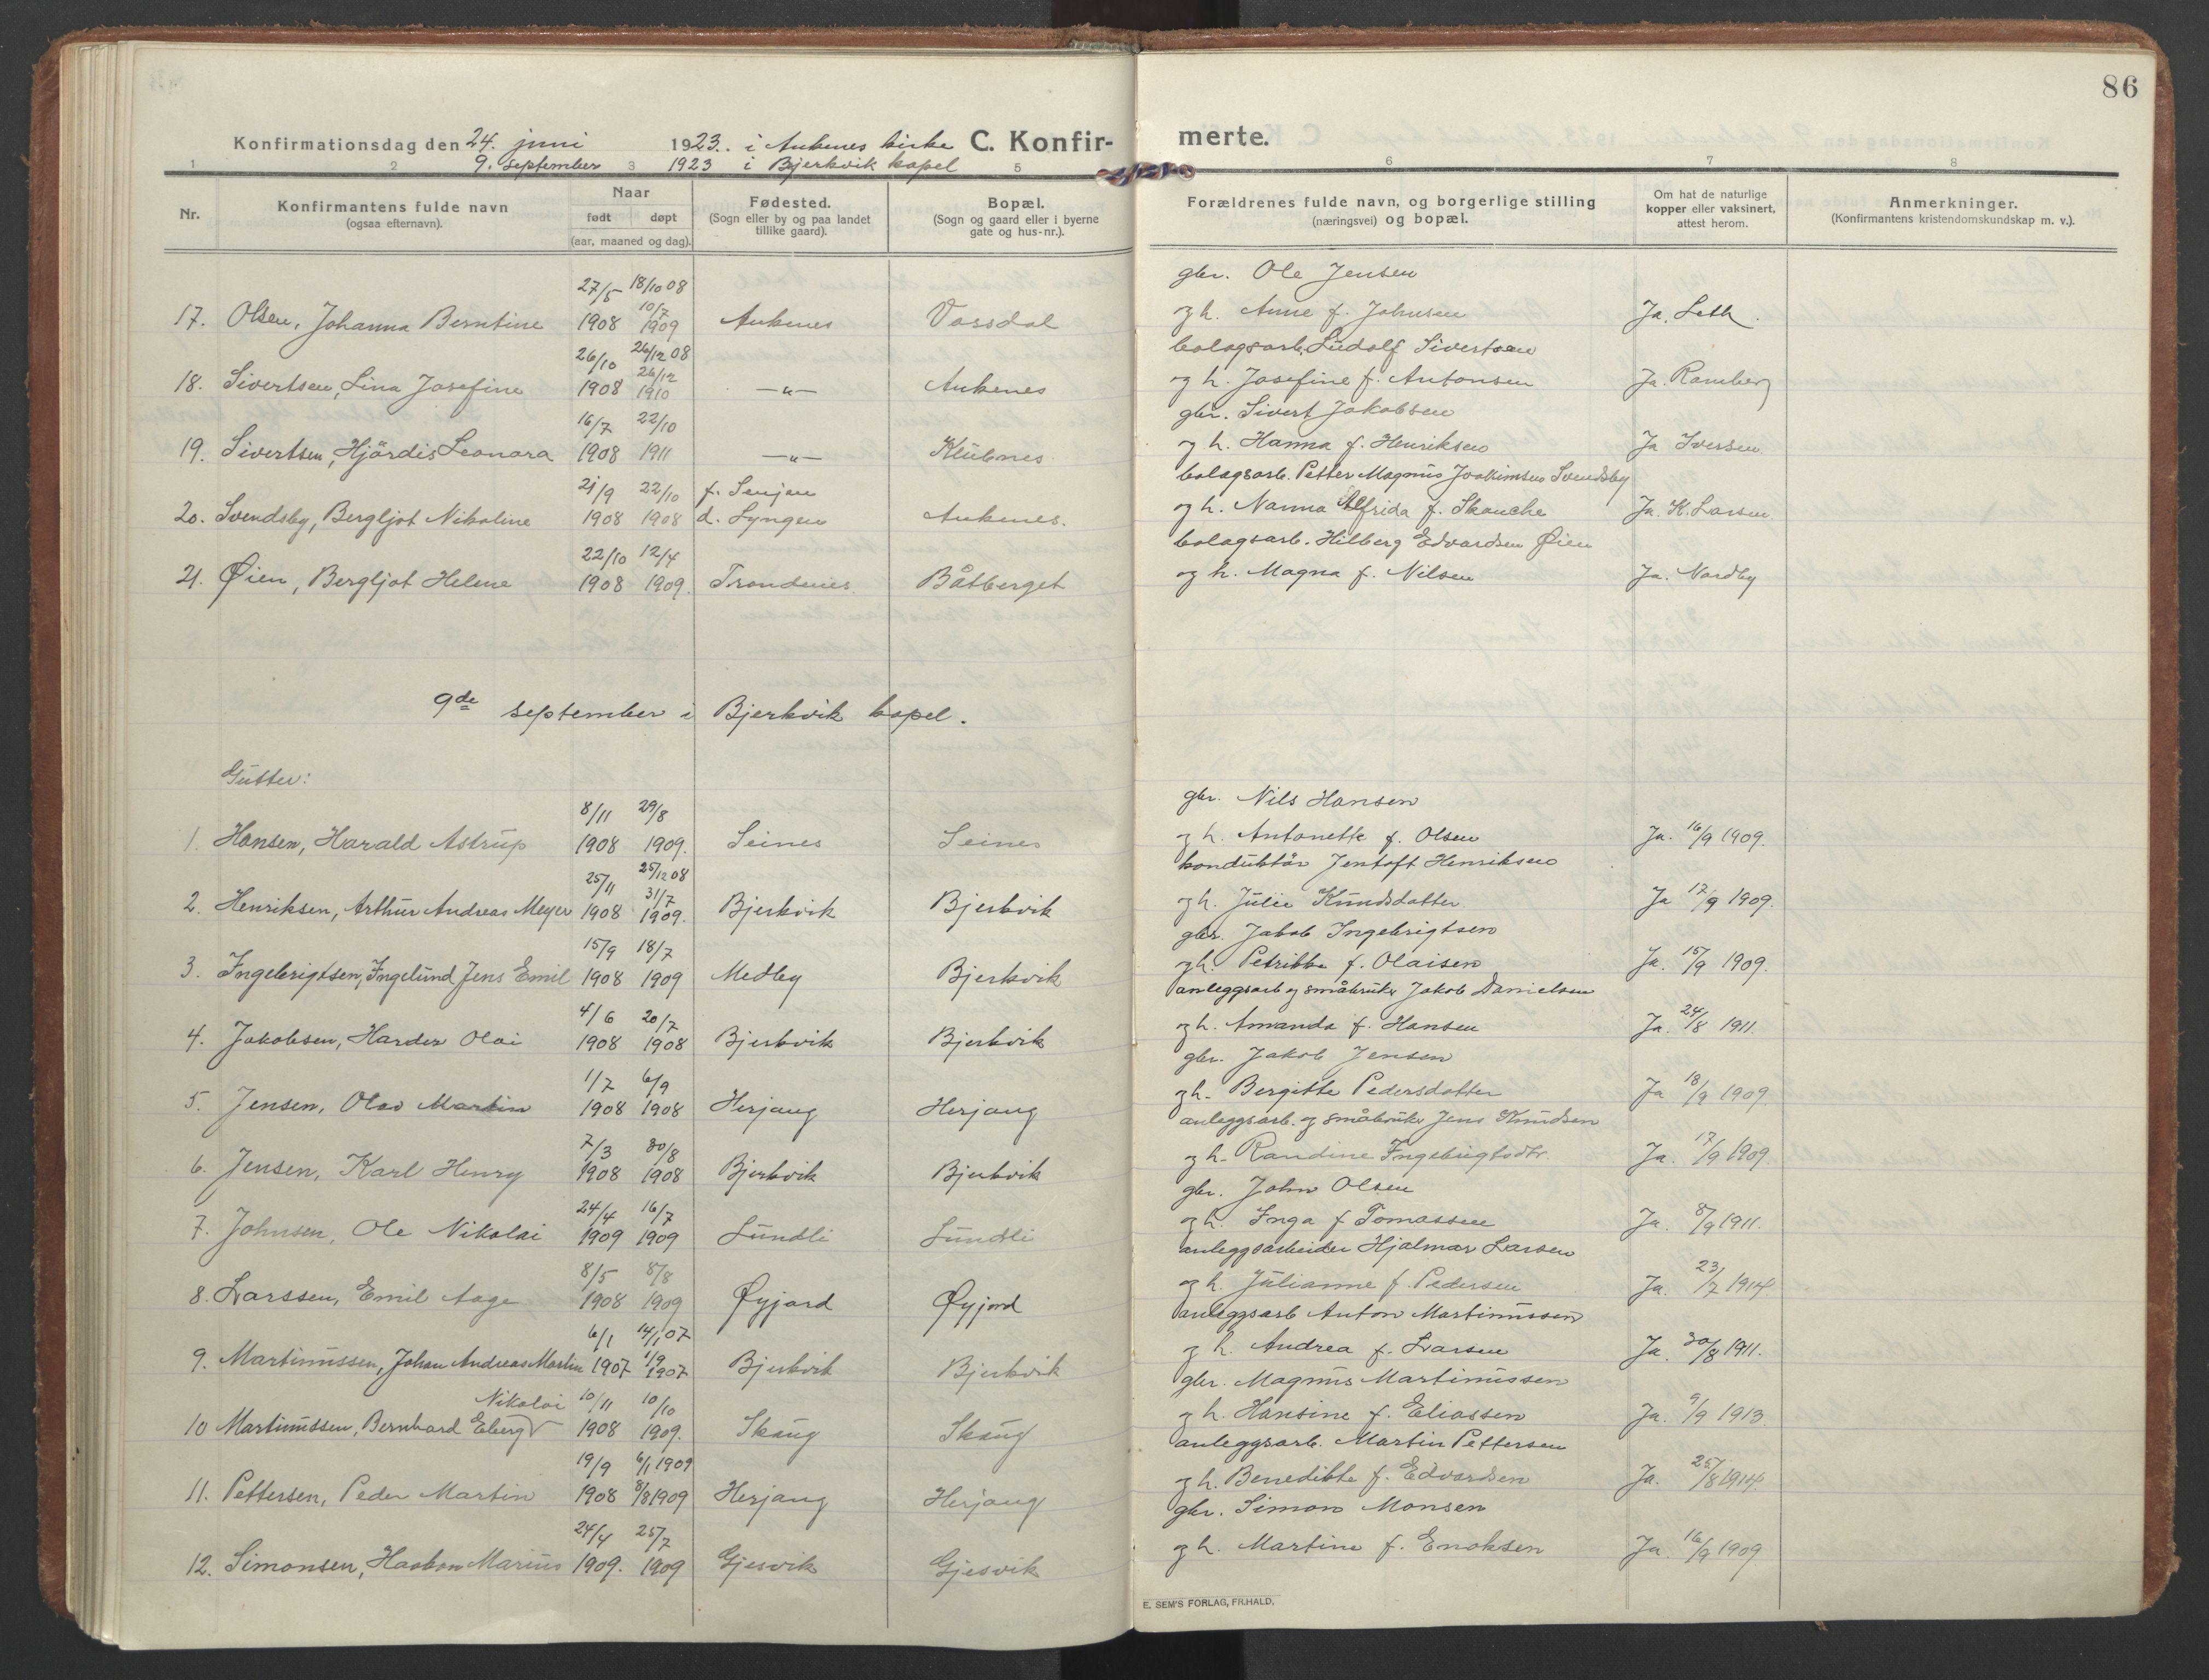 86
Konfirmationsdag den 24. juni 1923. i Ankenes kirke C. Konfir- merte.
9. september 1923 i Bjerkvik kapel
1 2 3 5 6 7 8
Nr. Konfirmantens fulde navn (ogsaa efternavn). Naar født døpt (aar, maaned og dag). Fødested. (Sogn eller by og paa landet tillike gaard). Bopæl. (Sogn og gaard eller i byerne gate og hus-nr.). Forældrenes fulde navn, og borgerlige stilling (næringsvei) og bopæl. Om hat de naturlige kopper eller vaksinert, attest herom. Anmerkninger. (Konfirmantens kristendomskundskap m. v.).
27/5 18/10 08 10/7 gbr. Ole Jensen
17. Olsen, Johanna Berntine 1908 1909 Ankenes Vassdal og h. Anne f. Johnsen Ja. Leth.
26/10 26/12 08 26/12 bolagsarb. Ludolf Sivertsen
18. Sivertsen, Lina Josefine 1908 1910 —"— Ankenes og h. Josefine f. Antonsen Ja. Ramberg
16/7 22/10 gbr. Sivert Jakobsen
19. Sivertsen, Hjördis Leonora 1908 1911 —"— Klubnes og h. Hanna f. Henriksen Ja Iversen
21/9 22/10 f. Senjen bolagsarb. Petter Magnus Joakimsen Svendsby
20. Svendsby, Bergljot Nikoline 1908 1908 d. Lyngen Ankenes. og h. Nanna Alfrida f. Skanche Ja. K. Larsen
22/10 12/4 bolagsarb. Hilberg Edvardsen Øien
21. Øien, Bergljot Helene 1908 1909. Trondenes Båtberget og h. Magna f. Nilsen Ja. Nordby
9de september i Bjerkvik kapel.
Gutter:
8/11 29/8 gbr. Nils Hansen
1. Hansen, Harald Astrup 1908 1909. Seines Seines og h. Antonette f. Olsen Ja. 16/9 1909.
25/11 25/12 08 31/7 konduktör Jentoft Henriksen
2. Henriksen, Arthur Andreas Meyer 1908 1909. Bjerkvik Bjerkvik og h. Julie Knudsdatter Ja 17/9 1909.
15/9 18/7 gbr. Jakob Ingebrigtsen
3. Ingebrigtsen, Ingelund Jens Emil 1908 1909 Medby Bjerkvik og h. Petrikke f. Olaisen Ja. 15/9 1909.
4/6 20/7 anleggsarb og småbruker Jakob Danielsen
4. Jakobsen, Harder Olai 1908 1908 Bjerkvik Bjerkvik og h. Amanda f. Hansen Ja. 24/8 1911.
1/7 6/9 gbr. Jakob Jensen
5. Jensen, Olav Martin 1908 1908 Herjang Herjang og h. Bergitte Pedersdatter Ja 18/9 1909
7/3 30/8 anleggsarb. og småbruker Jens Knudsen
6. Jensen, Karl Henry 1908 1908 Bjerkvik Bjerkvik og h. Randine Ingebrigtsdtr. Ja. 17/9 1909.
24/4 16/7 gbr. John Olsen
7. Johnsen, Ole Nikolai 1909 1909 Lundli Lundli og h. Inga f Tomassen Ja. 8/9 1911.
8/5 8/8 anleggsarbeider Hjalmar Larsen
8. Larssen, Emil Aage 1908 1909 Øyjord Øyjord og h. Julianne f. Pedersen Ja. 23/7 1914
6/1 14/1 07 anleggsarb Anton Martinussen
9. Martinussen, Johan Andreas Martin 1907 1/9 1907 Bjerkvik Bjerkvik og h. Andrea f. Larsen Ja. 30/8 1911.
Nikolai 10/11 10/10 gbr. Magnus Martinussen
10 Martinussen, Bernhard Eberg 1908 1909. Skaug Skaug og h. Hansine f. Eliassen Ja. 9/9 1913.
19/9 6/1 1909 anleggsarb. Martin Pettersen
11. Pettersen, Peder Martin 1908 8/8 1909 Herjang Herjang og h. Benedikte f. Edvardsen Ja. 25/8 1914.
24/4 25/7 gbr. Simon Monsen
12. Simonsen, Haakon Marius 1909. 1909 Gjesvik Gjesvik og h. Martine f. Enoksen Ja. 16/9 1909
E. SEM'S FORLAG, FR.HALD.